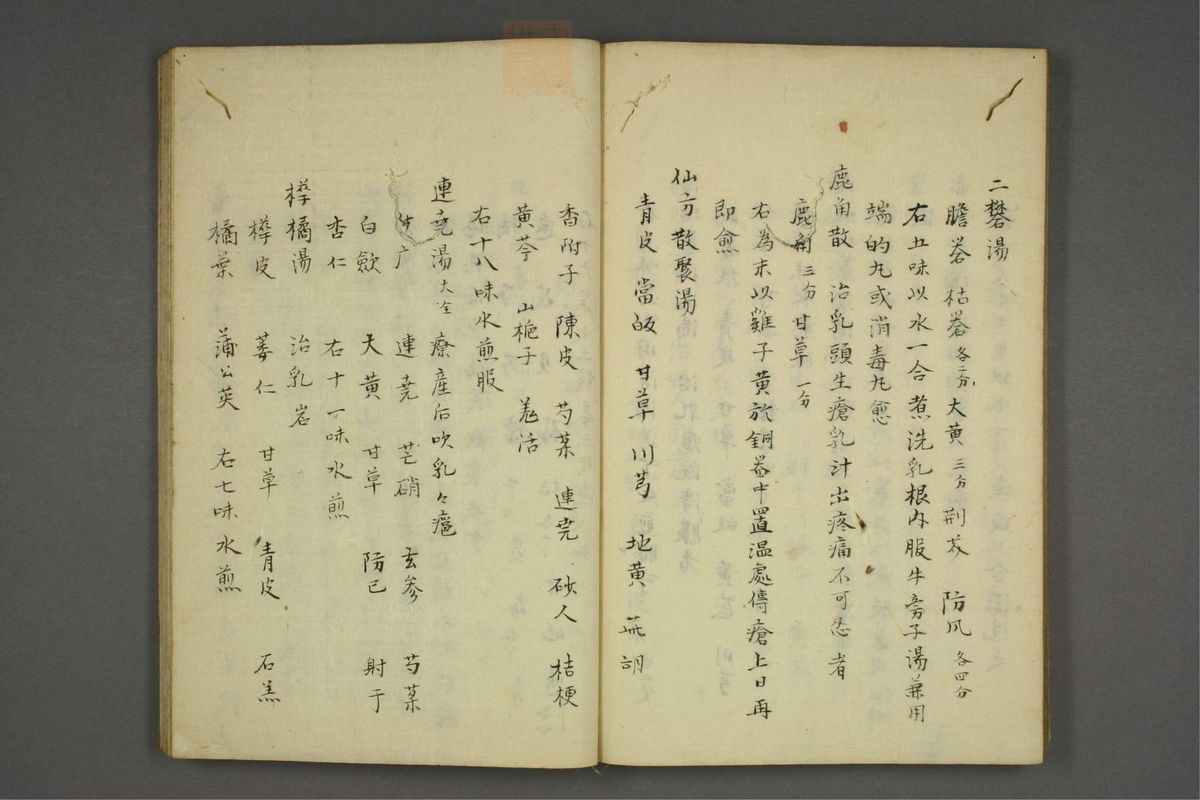 二礬湯
膽礬 枯礬各二分 大黃三分 荆芥 防风各四分
右五味以水一合煮洗乳根内服牛旁子湯兼用
端的丸或消毒丸愈
鹿角散 治乳頭生瘡乳汁出疼痛不可忍者
鹿角三分 甘草一分
右為末以雞子黃於銅器中置温處傅瘡上日再
即愈
仙方散聚湯
青皮 當皈 甘草 川芎 地黃 茈胡
香附子 陳皮 芍薬 連尭 砂人 桔梗
黃芩 山梔子 羌活
右十八味水煎服
連堯湯大全 療産后吹乳々癰
連堯 芒硝 玄参 芍薬
白歛 大黃 甘草 防已 射于
杏仁 右十一味水煎
樺橘湯 治乳岩
樺皮 蒌仁 甘草 青皮 石羔
橘葉 蒲公英 右七味水煎